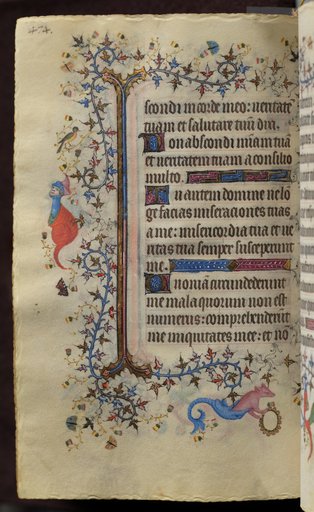 474.
scondi in corde meo: ueritatē
tuam et salutare tuū dixi.
Non abscondi miām tuā
et ueritatem tuam a consilio
multo.
Tu autem domine ne lō
ge facias miseraciones tuas
a me: misericordia tua et ue
ritas tua semper susceperunt
me.
Quoniā circundederunt
me mala quorum non est
numerus: comprehenderūt
me iniquitates mee: et nō